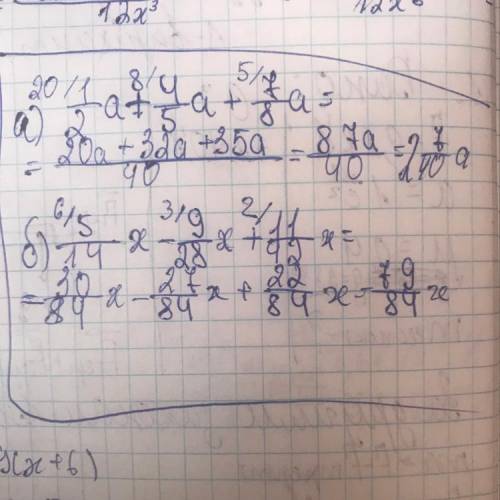 12x³ 12x
а) 20/ 1/2 a + 8/ 4/5 a + 5/ 7/8 a =
= 20a + 32a + 35a / 40 = 87a / 40 = 2 7/40 a
б) 6/ 5/14 x - 3/ 9/28 x + 2/ 11/42 x =
= 30/84 x - 27/84 x + 22/84 x = 79/84 x
(x+6)